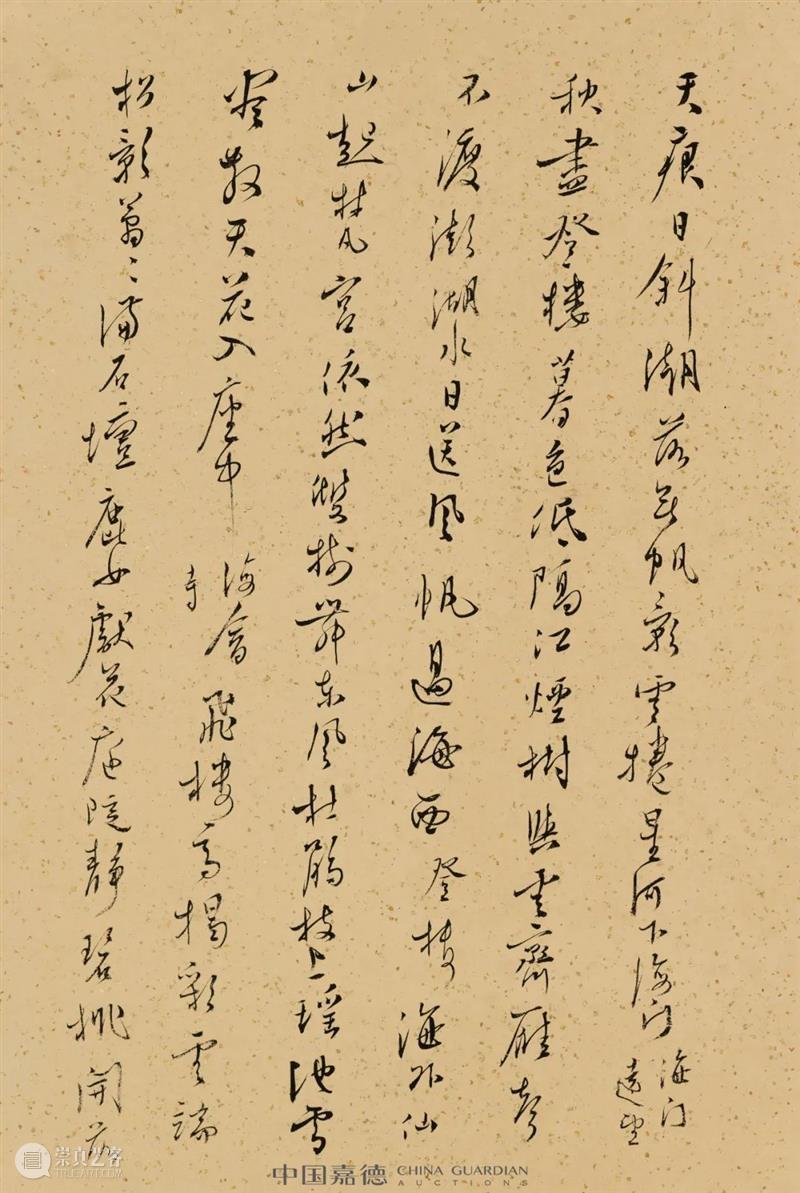 天痕日斜潮落無帆影雲捲星河下海門 海門
遠望
秋盡登樓暮色低隔江煙樹與雲齊雁聲
不渡澎湖水日送風帆過海西 登樓 海外仙
山起梵宮依然雙樹舞東風杜鵑枝上瑤池雪
散天花入座中 海會
寺
飛樓高揭彩雲端
松影蕭〻滿石壇鹿女獻花庭院靜碧桃開
崇真艺客
中国嘉德 CHINA GUARDIAN
AUCTIONS